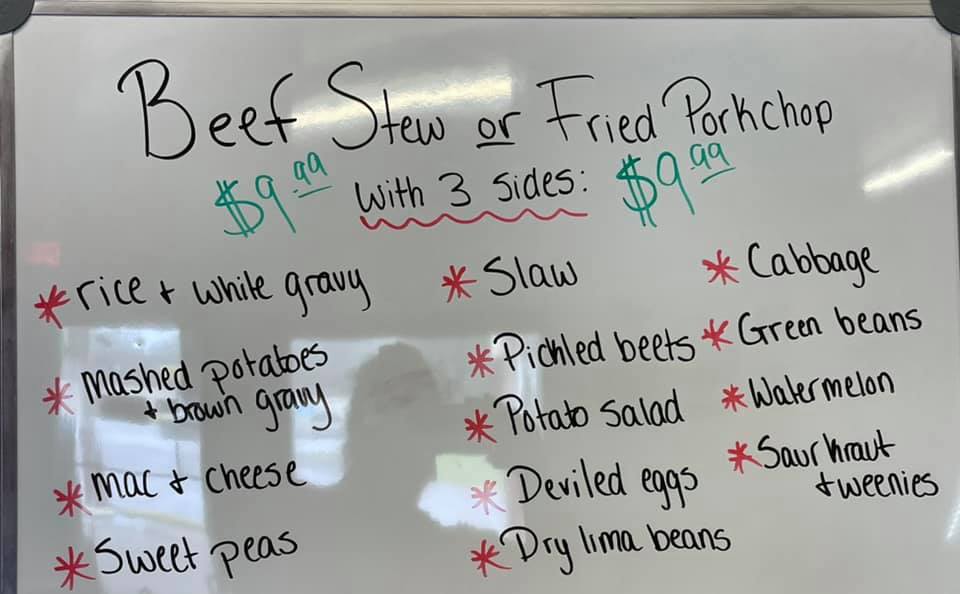 Beef Stew or Fried Porkchop
$9.99 with 3 sides: $9.99
* rice + white gravy
* mashed potatoes
+ brown gravy
* mac + cheese
* Sweet peas
* Slaw
* Pickled beets
* Potato salad
* Deviled eggs
* Dry lima beans
* Cabbage
* Green beans
* Watermelon
* Saurkraut
+ weenies